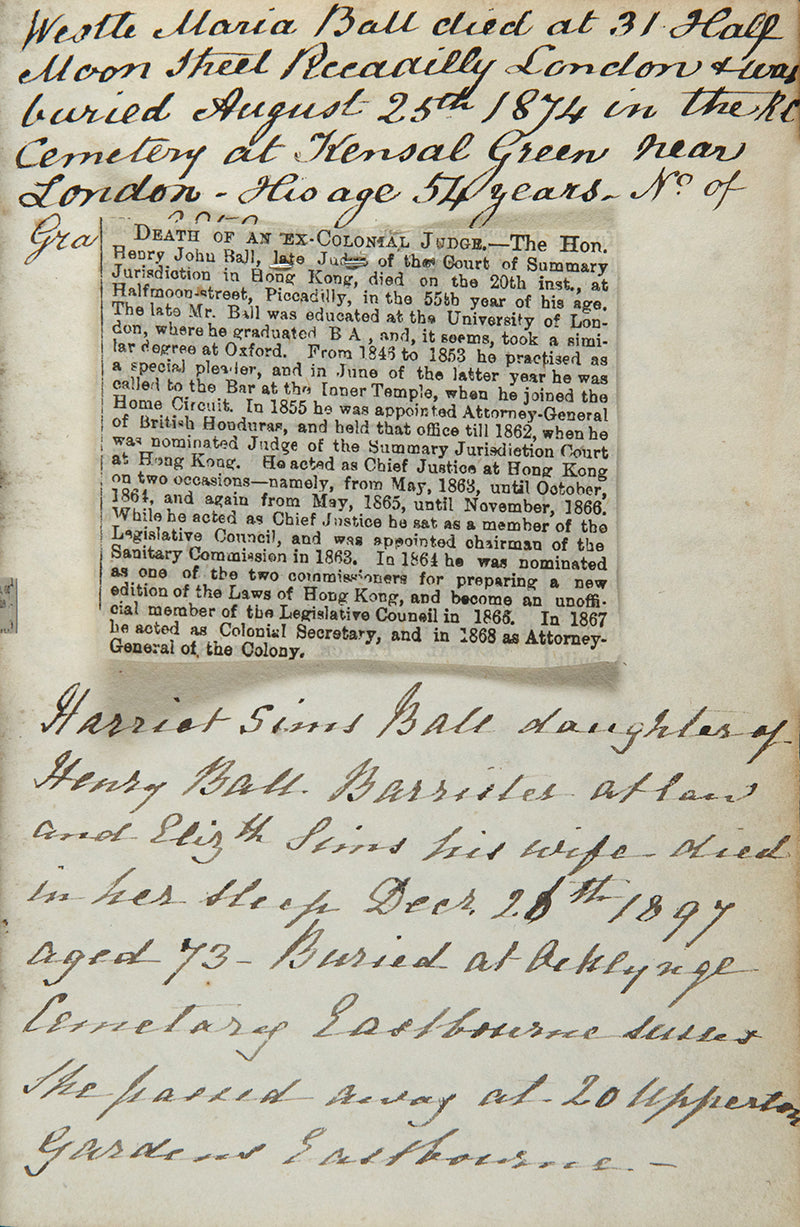 Westle Maria Ball died at 31 Half
Moon Street Piccadilly London & was
buried August 25th 1874 in the RC
Cemetery at Kensal Green near
London - His age 54 years - No of
Gra
DEATH OF AN EX-COLONIAL JUDGE.—The Hon.
Henry John Ball, late Judge of the Court of Summary
Jurisdiction in Hong Kong, died on the 20th inst., at
Halfmoon-street, Piccadilly, in the 55th year of his age.
The late Mr. Ball was educated at the University of Lon-
don, where he graduated B A , and, it seems, took a simi-
lar degree at Oxford. From 1846 to 1853 he practised as
a special pleader, and in June of the latter year he was
called to the Bar at the Inner Temple, when he joined the
Home Circuit. In 1855 he was appointed Attorney-General
of British Honduras, and held that office till 1862, when he
was nominated Judge of the Summary Jurisdiction Court
at Hong Kong. He acted as Chief Justice at Hong Kong
on two occasions—namely, from May, 1863, until October,
1864, and again from May, 1865, until November, 1866.
While he acted as Chief Justice he sat as a member of the
Legislative Council, and was appointed chairman of the
Sanitary Commission in 1863. In 1864 he was nominated
as one of the two commissioners for preparing a new
edition of the Laws of Hong Kong, and become an unoffi-
cial member of the Legislative Council in 1866. In 1867
he acted as Colonial Secretary, and in 1868 as Attorney-
General of the Colony.
Harriet Sims Ball daughter of
Henry Ball Barrister at law
and Elizth Sims his wife died
in her sleep Decr. 26th 1897
aged 73 - Buried at Ocklynge
Cemetary Eastbourne Sussex
She passed away at 20 Upperton
Gardens Eastbourne. -